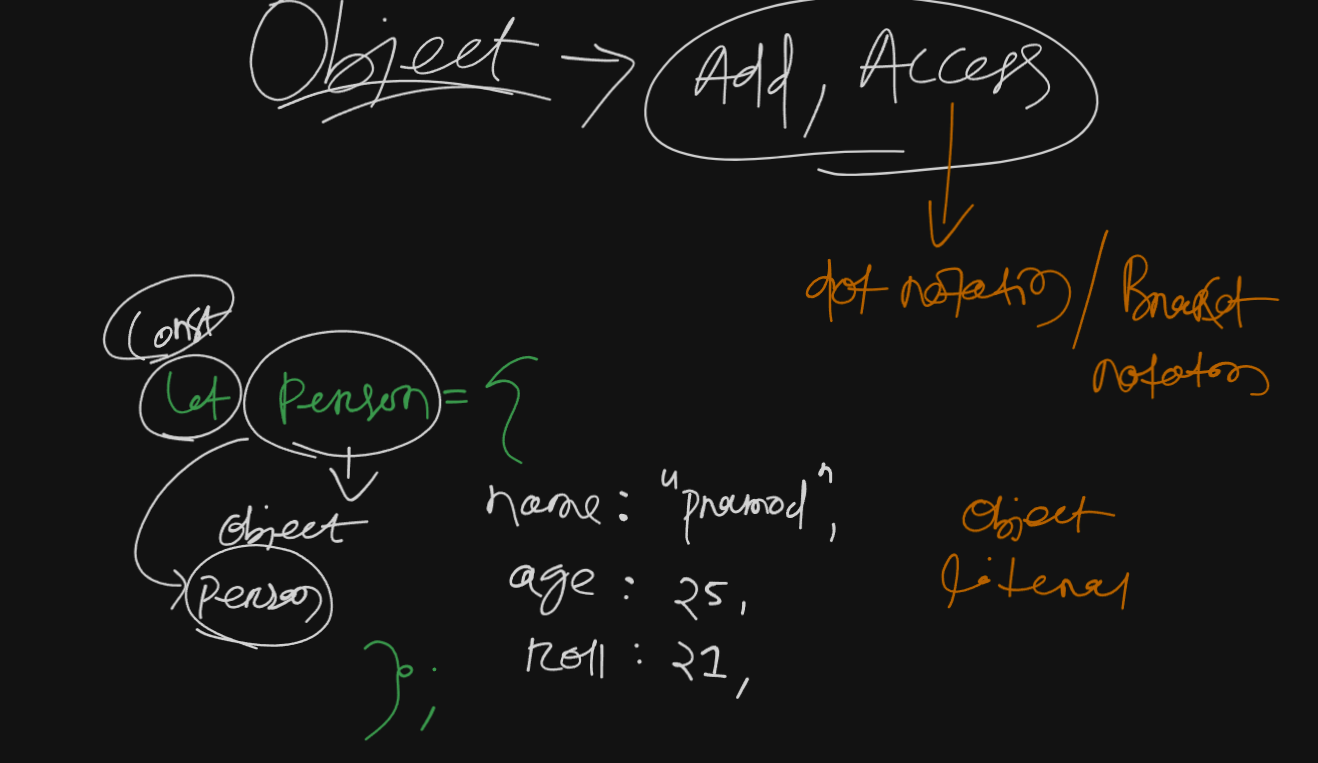 Object → Add, Access
dot notation / Bracket
notation
Const
let person = {
object
person
name : "pramod",
age : 25,
roll : 21,
};
Object
literal